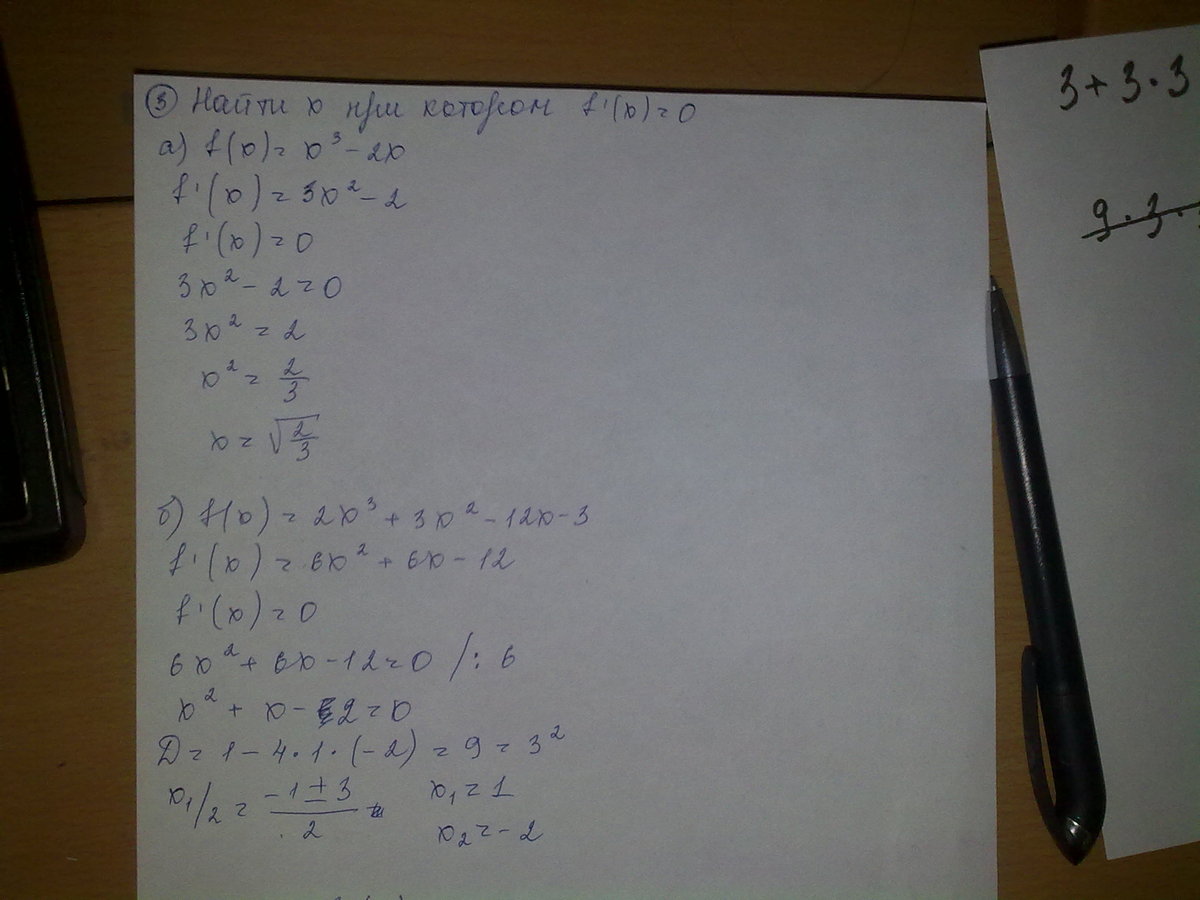 ③ Найти x при котором f'(x)=0
а) f(x) = x³ - 2x
f'(x) = 3x² - 2
f'(x) = 0
3x² - 2 = 0
3x² = 2
x² = 2/3
x = √(2/3)
б) f(x) = 2x³ + 3x² - 12x - 3
f'(x) = 6x² + 6x - 12
f'(x) = 0
6x² + 6x - 12 = 0 /: 6
x² + x - 2 = 0
D = 1 - 4·1·(-2) = 9 = 3²
x1/2 = (-1 ± 3)/2 x₁ = 1
x₂ = -2
3 + 3·3
9·3·